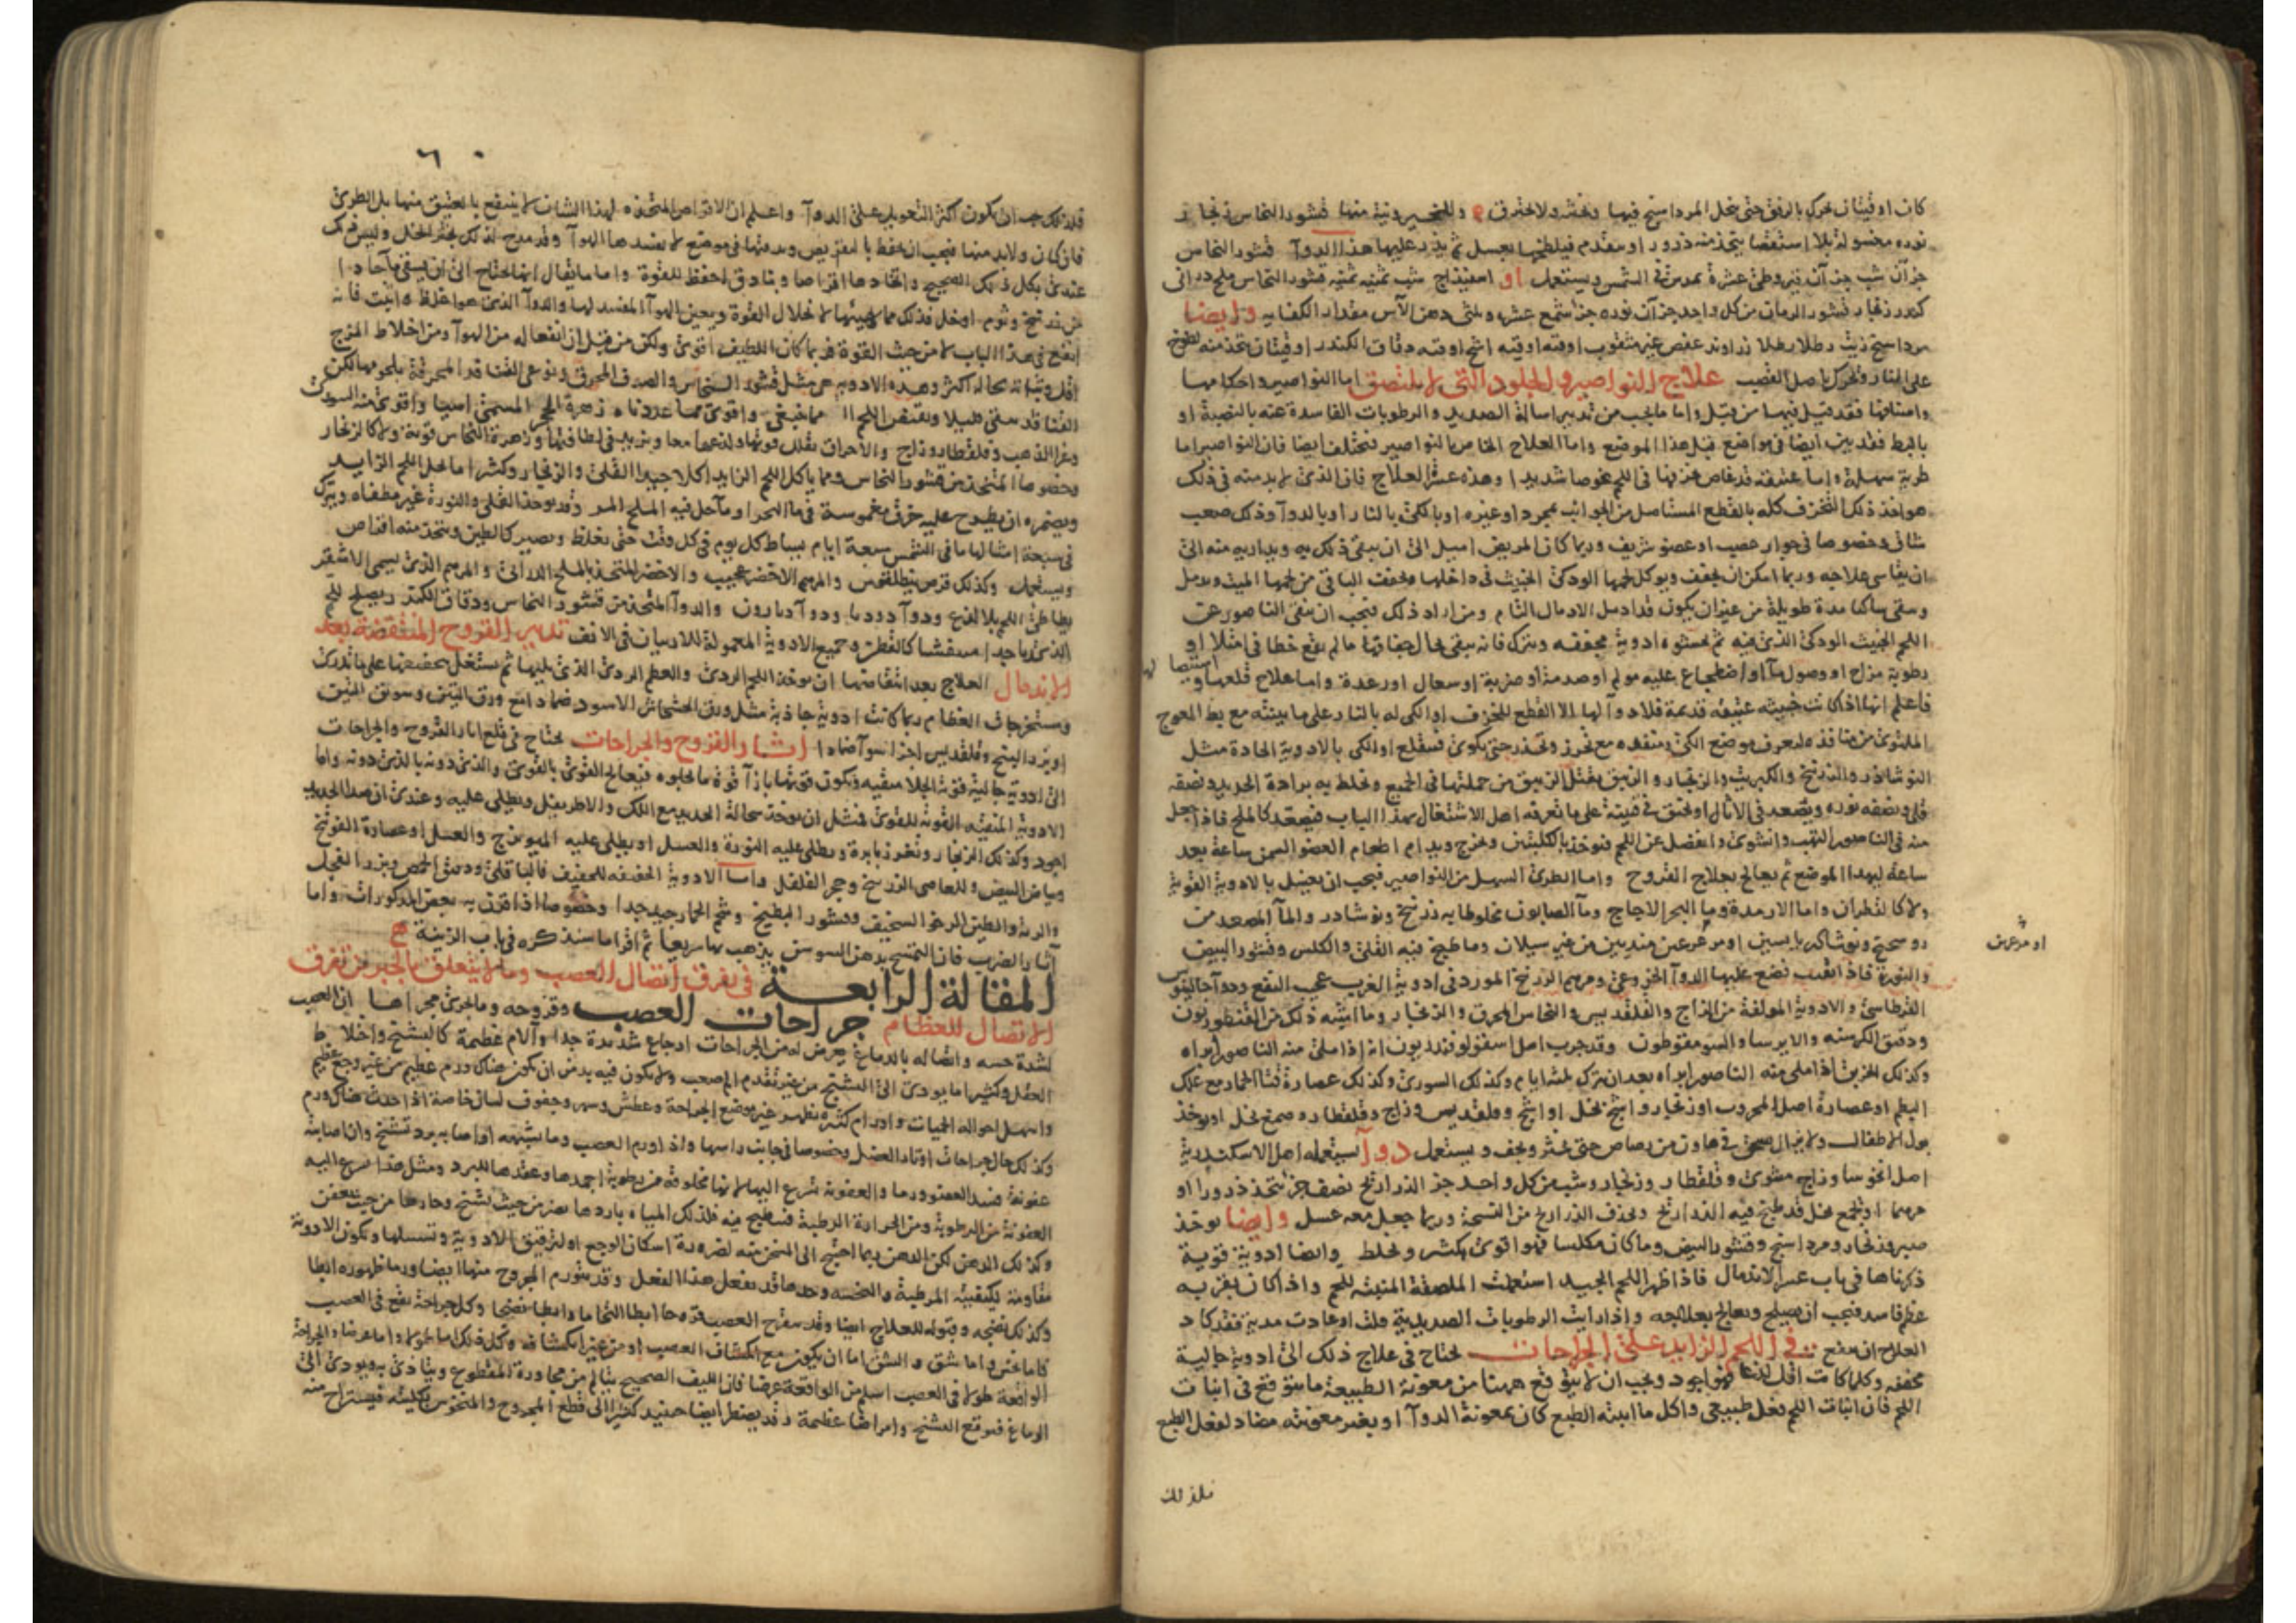 كان اوقيتان يحرك بالرفق حتى ينحل المرداسنج فيها ويخثر ولا يحترق منها قشور النحاس زنجار
نوره مغسولة بلا استقصا يتخذ منه ذرور او يتقدم فيلطخها بعسل ثم يذر عليها هذا الدوآ قشور النحاس
جزآن شب جزآن قيروطى عشرة يمدس فى الشمس ويستعمل او اسفيذاج شب ثمنيه ثمنيه قشور النحاس ملح درانى
كندر زنجار قشور الرمان من كل واحد جزآن نوره جزأ شمع عشره وثلثى دهن الآس مقدار الكفايه وايضا
مرداسنج زيت رطلا رطلا زراوند عفص غير مثقوب اوقيه اوقيه اشج اوقيه دقاق الكندر اوقيتان يتخذ منه لطوخ
على النار ويحرك باصل القصب علاج النواصير والجلود التى لا تلتصق اما النواصير واحكامها
واصنافها فقد قيل فيها من قبل واما ما يجب من تدبير اسالة الصديد والرطوبات الفاسدة عنه بالنصبة او
بالبط فقد بين ايضا فى مواضع قبل هذا الموضع واما العلاج الخاص بالنواصير فيختلف ايضا فان النواصير اما
طرية سهلة واما عتيقة قد غاص خزنها فى اللحم غوصا شديدا وهذه عسرة العلاج فان الذى لا بد منه فى ذلك
هو اخذ ذلك الخزف كله بالقطع المستاصل من الجوانب بمجرد او غيره او بالكى بالنار او بالدوآ وذلك صعب
شاق وخصوصا فى جوار عصب او عضو شريف وربما كان المريض اميل الى ان يبقى ذلك به ويداريه منه الى
ان يقاسى علاجه وربما امكن ان يجفف ويوكل لحمها الودكى الخبيث فى داخلها ويجفف الباقى من لحمها الميت ويدمل
وبقى ساكنا مدة طويلة من غير ان يكون قد ادمل الادمال التام ومن اراد ذلك فيجب ان ينقى الناصور عن
اللحم الخبيث الودكى الذى فيه ثم يحشوه ادوية مجففه ويترك فانه يبقى بحال جفافها ما لم يقع خطا فى امتلا او
رطوبة مزاج او وصول مآ او اضطجاع عليه مولم او صدمة او ضربة او سعال او رعدة واما علاج قلعها و
فاعلم انها اذا كانت خبيثه عتيقه قديمة فلا دوآ لها الا القطع للخزف او الكى له بالنار على ما بينته مع بط المعوج
الملتوى من منافذه ليعرف موضع الكى ومنفذه مع تحرز وتحذر حتى يكوى فيقلع او الكى بالادوية الحادة مثل
النوشاذر والزرنيخ والكبريت والزنجار والزيبق يقتل الزيبق من جملتها فى الجميع ويخلط به برادة الحديد ونصفه
قلى ونصفه نوره ويصعد فى الاثال او يخنق فى قنينة على ما تعرفه اهل الاشتغال بهذا الباب فيصعد كالملح فاذا جعل
منه فى الناصور التهب وانشوى وانفصل عن اللحم فيوخذ بالكلبتين ويخرج ويدام اطعام العضو السمن ساعة بعد
ساعة ليهدا الموضع ثم يعالج بعلاج القروح واما الطرى السهل من النواصير فيجب ان يغسل بالادوية القوية
ولا كالقطران واما الارمدة وما البحر الاجاج ومآ الصابون مخلوطا به زرنيخ ونوشادر والمآ المصعد من
والنورة فاذا انقيت تضع عليها الدوآ الخروعى ومرهم الزرنيخ المورد فى ادوية الغرب عجيب النفع ودوآ جالينوس
القرطاسى والادوية المولفة من الزاج والقلقديس والنحاس المحرق والزنجار وما اشبه ذلك من القنطوريون
ودقيق الكرسنه والايرسا والسومفوطون وقد جرب اصل اسقولوفندريون انه اذا ملى منه الناصور ابراه
وكذلك الخربق اذا ملى منه الناصور ابراه بعد ان يترك ثلثه ايام وكذلك السورى وكذلك عصارة قثا الحمار مع علك
البطم او عصارة اصل المحروت او زنجار واشج بخل او اشج وقلقديس وزاج وقلقطار وصمغ بخل او يوخذ
بول الاطفال ولا يزال يسحق فى هاون من رصاص حتى يخثر ويجف ويستعمل دوآ يستعمله اهل الاسكندرية
اصل انخوسا وزاج مشوى وقلقطار وزنجار وشب من كل واحد جز الذراريح نصف جز يتخذ ذرورا او
مرهما او يجمع بخل قد طبخ فيه الذراريح ويحذف الذراريح من النسخة وربما جعل معه عسل وايضا يوخذ
صبر وزنجار ومرداسنج وقشور البيض وما كان مكلسا فهو اقوى يكشر ويخلط وايضا ادوية قوية
ذكرناها فى باب عسر الاندمال فاذا ظهر اللحم الجيد استعملت الملصقة المنبته للحم واذا كان بقربه
عظم فاسد فيجب ان يصلح ويعالج بعلاجه واذا رايت الرطوبات الصديدية قلت او عادت مدية فقد كاد
العلاج ان ينفع فى اللحم الزايد على الجراحات يحتاج فى علاج ذلك الى ادوية جالية
مجففه وكلما كانت اقل لذعا فهو اجود ويجب ان لا يتوقع ههنا من معونة الطبيعة ما يتوقع فى انبات
اللحم فان انبات اللحم فعل طبيعى واكل ما انبته الطبع كان بمعونة الدوآ او بغير معونته مضاد لفعل الطبع
او مرعزى
فلذلك
٦٠
فلذلك يجب ان يكون اكثر التعويل على الدوآ واعلم ان الاقراص المتخذه لهذا الشان لا ينتفع بالعتيق منها بل الطرى
فان كان ولا بد منها فيجب ان يحفظ بالتقريص ويدفنها فى موضع لا يفسدها الهوآ وقد مدح لذلك بجير الخل وليس ذلك
عندى بكل ذلك الصحيح واتخاذها اقراصا وبنادق احفظ للقوة واما ما يقال انها تحتاج الى ان يسقى مآ حادا
من زرنيخ وثوم او خل فذلك مما يهيئها لانحلال القوة ويعين الهوآ المفسد لها والدوآ الذى هو اغلظ واثبت فانه
انفع فى هذا الباب لا من حيث القوة فربما كان اللطيف اقوى ولكن من قبل ان انفعاله من الهوآ ومن اخلاط المزج
اقل وثباته بحاله اكثر وهذه الادوية هى مثل قشور النحاس والصدف المحرق ونوعى القنافد المحرقة بلحومها لكن
القنافد ينقى قليلا وينقص اللحم مما ينبغى واقوى مما عددناه زهرة الحجر المسمى اسيا واقوى منه السورى
وغرا الذهب وقلقطار وزاج والاحراق يقلل قوتها ولذعها معا ويزيد فى لطافتها وزهرة النحاس قوية ولا كالزنجار
وخصوصا المتخذ من قشور النحاس ومما ياكل اللحم الزايد اكلا جيدا القلى والزنجار وكثيرا ما يحل اللحم الزايد
ويضمره ان يطرح عليه خرق مغموسة فى مآ البحر او مآ حل فيه الملح المر وقد يوخذ القلى والنورة غير مطفاه ويترك
فى سبعة امثالها مآ فى الشمس سبعة ايام يساط كل يوم فى كل وقت حتى يغلظ ويصير كالطين ويتخذ منه اقراص
ويستعمل وكذلك قرص بنطلقوس والمرهم الاخضر عجيب والاخضر المتخذ بالملح الدرانى والمرهم الذى يسمى الاشقر
يطاطى اللحم بلا لذع ودوآ دوديا ودوآ ديارون والدوآ المتخذ من قشور النحاس ودقاق الكندر ويصلح للحم
الذى ربا جدا منتفشا كالفطر وجميع الادوية المعمولة للاربيان فى الانف تدبير القروح المنتقضة بعد
الاندمال العلاج بعد انتقاضها ان يوخذ اللحم الردى والعظم الردى الذى يليها ثم يستغل بتجفيفها على ما تدرى
ومستخرجات العظام ربما كانت ادوية جاذبة مثل ورق الخشخاش الاسود ضمادا مع ورق التين وسويق التين
او بزر البنج وقلقديس اجزا سوآ ضمادا آثار القروح والجراحات يحتاج فى قلع اثار القروح والجراحات
الى ادوية جالية قوية الجلا منقيه ويكون قوتها بازآ قوة ما يجلوه فيعالج القوى بالقوى والذى دونه بالذى دونه واما
الادوية المنقيه القوية للقوى فمثل ان يوخذ سحالة الحديد مع اللك والاطريفل ويطلى عليه وعندى ان صدا الحديد
اجود وكذلك الزنجار ويغرز بابرة ويطلى عليه النورة والعسل او يطلى عليه الميويزج والعسل او عصارة الفوتنج
وبياض البيض وللعاصى الزرنيخ وحجر الفلفل واما الادوية الخفيفه للخفيف فالباقلى ودقيق الحمص وبزر الفجل
والرته والطين الرخو السخيف وقشور البطيخ وشحم الحمار جيد جدا وخصوصا اذا قرن به بعض المذكورات واما
آثار الضرب فان التمسح بدهن السوسن يذهب بها سريعا ثم اقرا ما سنذكره فى باب الزينة
المقالة الرابعة فى تفرق اتصال العصب وما لا يتعلق بالجبر من تفرق
الاتصال للعظام جراحات العصب وقروحه وما يجرى مجراها ان العصب
لشدة حسه واتصاله بالدماغ يعرض له من الجراحات اوجاع شديدة جدا وآلام عظيمة كالتشنج واختلاط
العقل وكثيرا ما يودى الى التشنج من غير تقدم الم صعب ولا يكون فيه بد من ان يكون هناك ورم عظيم من غير وجع عظيم
واسهل احواله الحميات واورام كثيرة يظهر غير موضع الجراحة وعطش وسهر وجفوف لسان خاصة اذا حدث هناك ورم
وكذلك حال جراحات اوتار العضل وخصوصا فى جانب راسها واذا ورم العصب وما يشبهه او اصابه برد تشنج وان اصابته
عفونة فسد العضو ورما والعفونة تسرع اليها لانها مخلوقة من رطوبة اجمدها وعقدها للبرد ومثل هذا تسرع اليه
العفونة من الرطوبة ومن الحرارة الرطبة فتطبخ فيه فلذلك المياه باردها يضر من حيث يشنج وحارها من حيث يعفن
وكذلك الدهن لكن الدهن ربما احتيج الى المسخن منه لضرورة اسكان الوجع او لترقيق الادوية وتسيلها ويكون الادوية
مقاومة لكيفيته المرطبة والعضه وحدها قد يفعل هذا الفعل وقد يتورم المجروح منها ايضا ورما ظهوره ابطا
وكذلك نضجه وقبوله للعلاج ايضا وقد يتقرح العصب قروحا ابطا التحاما وابطا نضجا وكل جراحة تقع فى العصب
فاما نخس واما شق والشق اما ان يكون مع انكشاف العصب او من غير انكشاف وكل ذلك اما طولا واما عرضا والجراحة
الواقعة طولا فى العصب اسلم من الواقعة عرضا فان الليف الصحيح يتالم من مجاورة المقطوع ويتاذى به ويودى الى
الدماغ فيوقع التشنج وامراضا عظيمة وقد يضطر ايضا حينيذ كثيرا الى قطع المجروح والمنخوس بكليته فيستراح منه